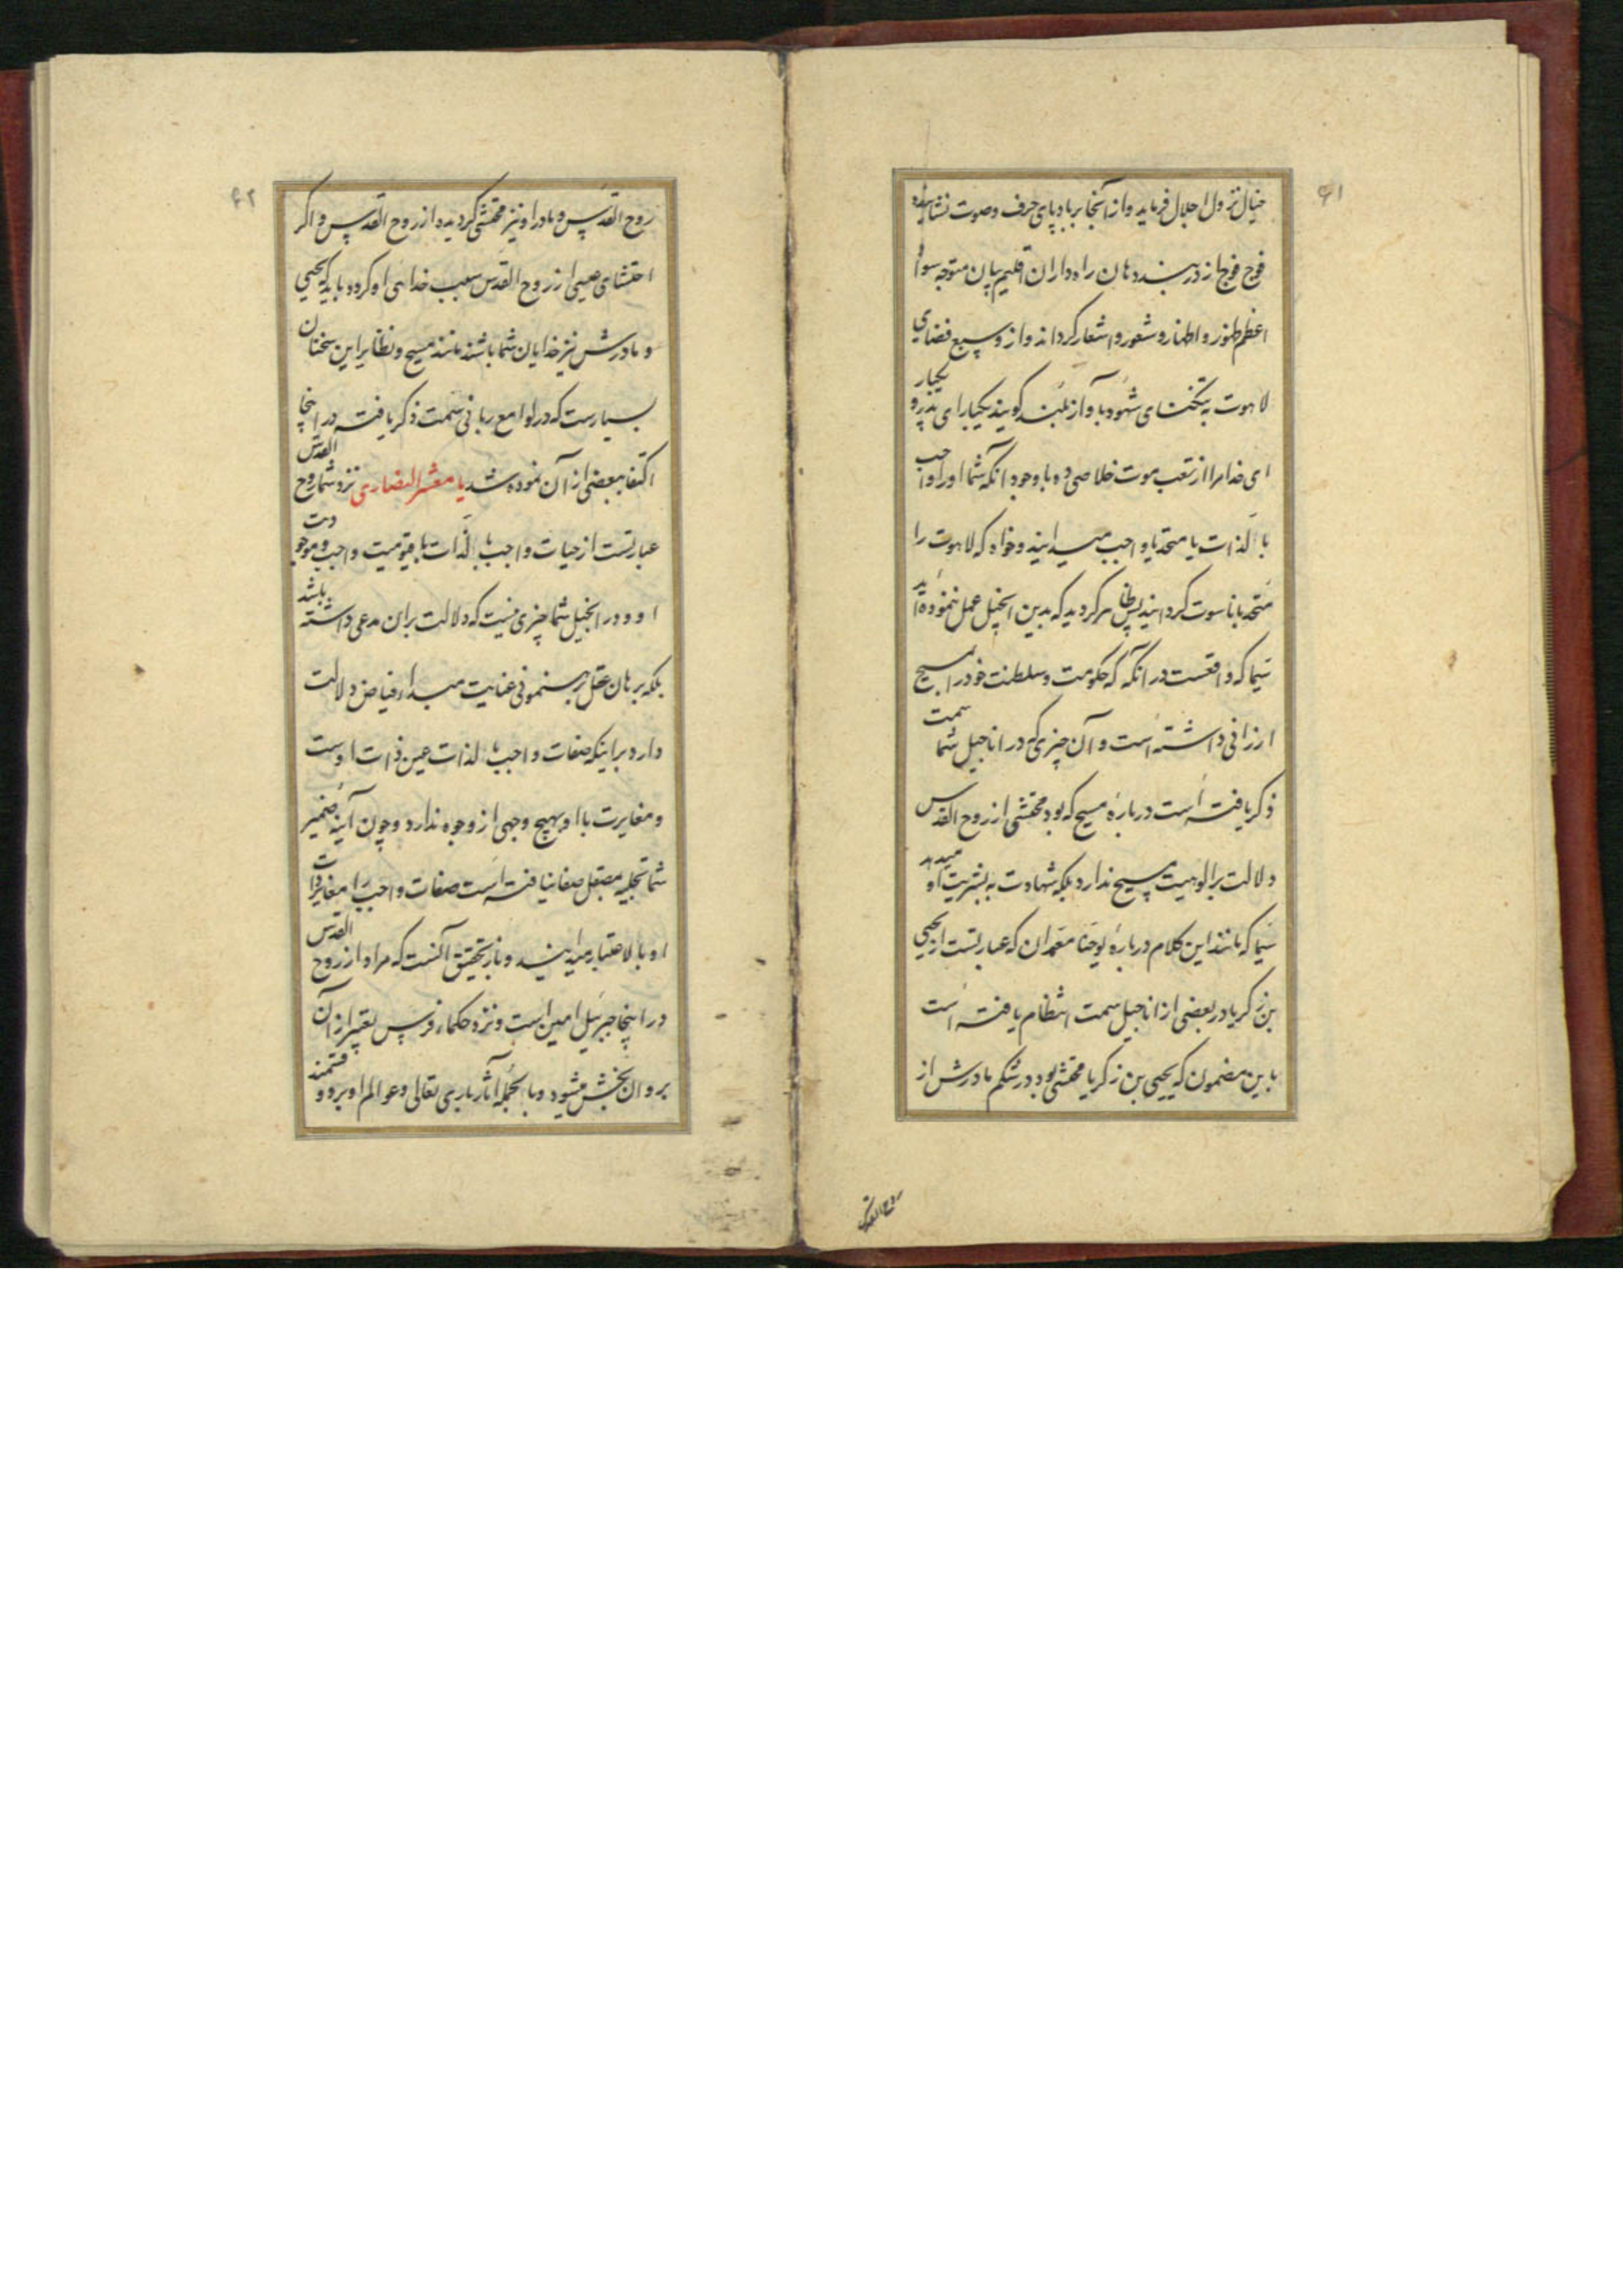 ۶۱
خیال نزول اجلال فرماید و از آنجا بر باد پای حرف و صوت نشانیده
فوج فوج از دربند دهان راه داران اقلیم بیان متوجه سواد
اعظم ظهور و اظهار و شعور و اشعار گرداند و از وسیع فضای
لاهوت به تنگنای شهود با آواز بلند گویند یکبار ای پدر و یکبار
ای خدا مرا از تعب موت خلاصی ده با وجود انکه شما او را واجب
بالذات یا متحد با واجب میدانید و خواه که لاهوت را
متحد با ناسوت گردانید پس ظاهر گردید که بدین انجیل عمل ننموده‌اید
سیما که واقعست در آنکه که حکومت و سلطنت خود را بمسیح
ارزانی داشته است و آن چیزی که در اناجیل شما سمت
ذکر یافته است درباره مسیح که بود محتشی از روح القدس
دلالت بر الوهیت مسیح ندارد بلکه شهادت به بشریت او میدهد
سیما که مانند این کلام درباره یوحنا معمدان که عبارتست از یحیی
بن زکریا در بعضی از اناجیل سمت انتظام یافته است
باین مضمون که یحیی بن زکریا محتشی بود در شکم مادرش از
روح القدس
۶۲
روح القدس و مادر او نیز محتشی گردیده از روح القدس و اگر
احتشای عیسی از روح القدس سبب خدائی او گردد باید که یحیی
و مادرش نیز خدایان شما باشند مانند مسیح و نظایر این سخنان
بسیارست که در لوامع ربانی سمت ذکر یافته در اینجا
اکتفا ببعضی از آن نموده شد یا معشر النصاری نزد شما روح القدس
عبارتست از حیات واجب بالذات یا قیومیت واجب و موجودیت
او و در انجیل شما چیزی نیست که دلالت بران مدعی داشته باشد
بلکه برهان عقل برهنمونی عنایت مبداء فیاض دلالت
دارد بر اینکه صفات واجب بالذات عین ذات اوست
و مغایرت با او بهیچ وجهی از وجوه ندارد و چون آینه ضمیر
شما تجلیه بمصقل صفا نیافته است صفات واجب را مغایر ذات
او بالاعتبار میدانید و نار تحقیق آنست که مراد از روح القدس
در اینجا جبرئیل امین است و نزد حکماء فرس تعبیر از آن
بروان بخش میشود و بالجمله آثار باری تعالی و عوالم او بر دو قسمند